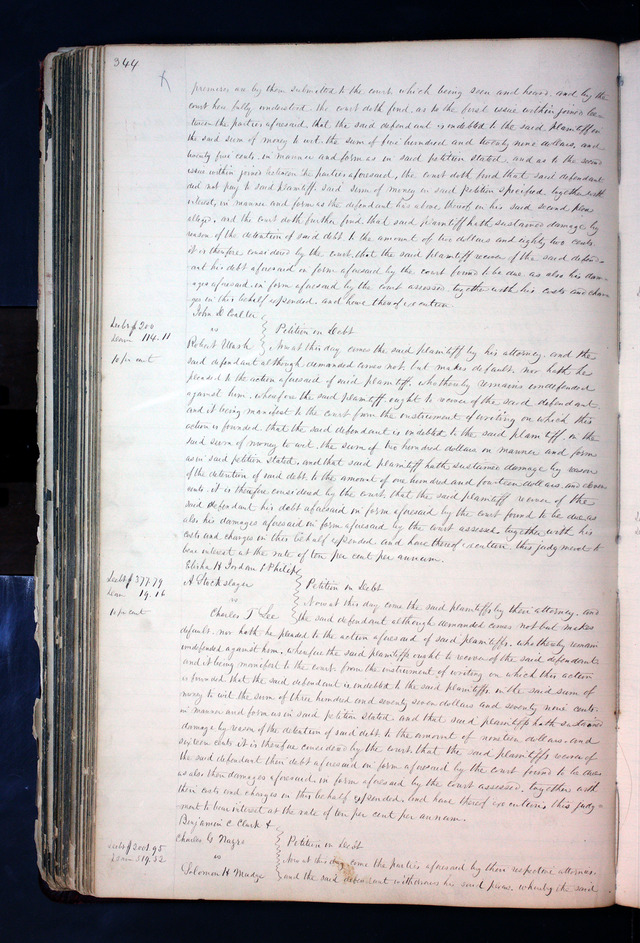 344
premises are by them submitted to the court which being seen and heard, and by the
court here fully understood, the court doth find, as to the first issue within joined be
tween the parties aforesaid, that the said defendant is indebted to the said plaintiff in
the said sum of money to wit the sum of five hundred and twenty nine dollars, and
twenty five cents, in manner and form as in said petition stated, and as to the second
issue within joined between the parties aforesaid, the court doth find that said defendant
did not pay to said plaintiff said sum of money in said petition specified together with
interest, in manner and form as the defendant has above thereof in his said second plea
alleged, and the court doth further find that said plaintiff hath sustained damage by
reason of the detention of said debt to the amount of two dollars and eighty two cents.
it is therefore considered by the court, that the said plaintiff recover of the said defend-
ant his debt aforesaid in form aforesaid by the court found to be due as also his dam-
ages aforesaid in form aforesaid by the court assessed, together with his costs and char
ges in this behalf expended, and have thereof execution
John D Coalter
Debt $200
Dam 114.11
vs Petition in Debt
Robert Wash Now at this day comes the said plaintiff by his attorney, and the
10 per cent
said defendant although demanded comes not but makes default, nor hath he
pleaded to the action aforesaid of said plaintiff, whothereby remains undefended
against him, wherefore the said plaintiff ought to recover of the said defendant
and it being manifest to the court from the instrument of writing on which this
action is founded, that the said defendant is indebted to the said plaintiff in the
said sum of money to wit, the sum of two hundred dollars in manner and form
as in said petition stated, and that said plaintiff hath sustained damage by reason
of the detention of said debt to the amount of one hundred and fourteen dollars, and eleven
cents. it is therefore considered by the court, that the said plaintiff recover of the
said defendant his debt aforesaid in form aforesaid by the court found to be due as
also his damages aforesaid in form aforesaid by the court assessed, together with his
costs and charges in this behalf expended and have thereof execution, this judgment to
bear interest at the rate of ten per cent per annum.
Elisha H Jordan & Philip
Debt $377.79
Dam 19.16
A Stockslager Petition in Debt
vs Now at this day come the said plaintiffs by their attorney, and
10 per cent
Charles T Lee the said defendant although demanded comes not but makes
default, nor hath he pleaded to the action aforesaid of said plaintiffs, whothereby remain
undefended against him, wherefore the said plaintiffs ought to recover of the said defendant
and it being manifest to the court, from the instrument of writing on which this action
is founded that the said defendant is indebted to the said plaintiffs in the said sum of
money to wit the sum of three hundred and seventy seven dollars and seventy nine cents
in manner and form as in said petition stated and that said plaintiffs hath sustained
damage by reason of the detention of said debt to the amount of nineteen dollars, and
sixteen cents it is therefore considered by the court, that the said plaintiffs recover of
the said defendant their debt aforesaid in form aforesaid by the court found to be due
as also their damages aforesaid, in form aforesaid by the court assessed, together with
their costs and charges in this behalf expended, and have thereof execution, this judg-
ment to bear interest at the rate of ten per cent per annum.
Benjamin C Clark &
Debt $2001.95
Dam $19.32
Charles G Nazro Petition in Debt
vs Now at this day come the parties aforesaid by their respective attornies.
Solomon H Mudge and the said defendant withdraws his said pleas, whereby the said